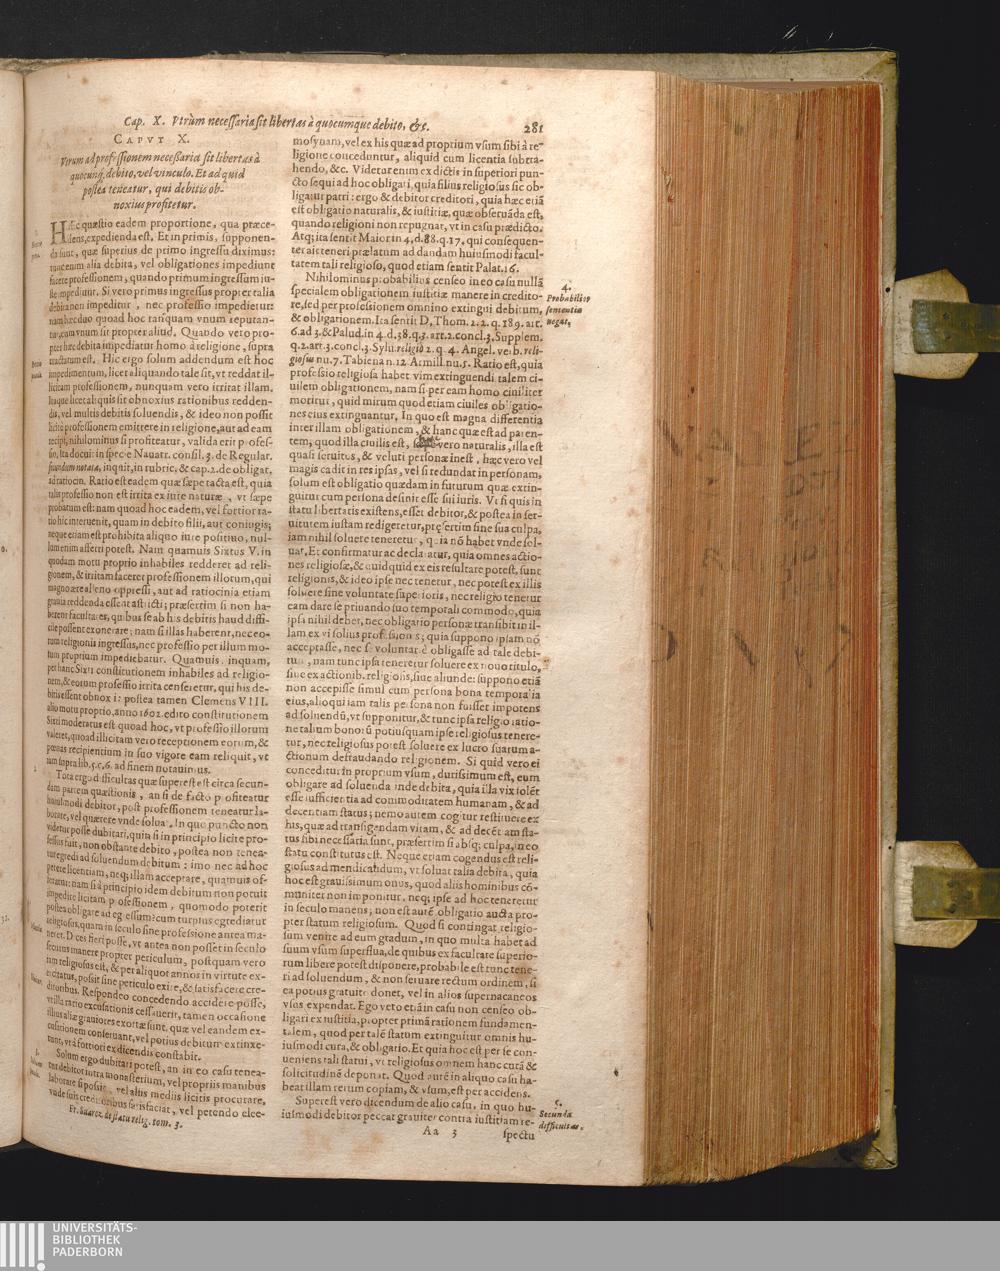 Cap. X. Vtrùm necessaria sit libertas à quocumque debito, &c.
281
CAPVT X.
Vtrum ad professionem necessaria sit libertas à
quocunq, debito, vel vinculo. Et ad quid
postea teneatur, qui debitis ob-
noxius profitetur.
HÆc quæstio eadem proportione, qua præce-
dens, expedienda est. Et in primis, supponen-
da sunt, quæ superius de primo ingressu diximus:
tunc enim alia debita, vel obligationes impediunt
facere professionem, quando primum ingressum iu-
ste impediunt. Si vero primus ingressus propter talia
debita non impeditur, nec professio impedietur:
nam hæc duo quoad hoc tanquam vnum reputan-
tur, cum vnum sit propter aliud. Quando vero pro-
pter hæc debita impediatur homo à religione, supra
tractatum est. Hic ergo solum addendum est hoc
impedimentum, licet aliquando tale sit, vt reddat il-
licitam professionem, nunquam vero irritat illam.
Itaque licet aliquis sit obnoxius rationibus redden-
dis, vel multis debitis soluendis, & ideo non possit
licitè professionem emittere in religione, aut ad eam
recipi, nihilominus si profiteatur, valida erit profes-
sio, ita docuit in specie Nauarr. consil. 3. de Regular.
secundum notata, inquit, in rubric. & cap. 2. de obligat.
ad ratiocin. Ratio est eadem quæ sæpe tacta est, quia
talis professio non est irrita ex iure naturæ, vt sæpe
probatum est: nam quoad hoc eadem, vel fortior ra-
tio hic interuenit, quam in debito filii, aut coniugis;
neque etiam est prohibita aliquo iure positiuo, nul-
lum enim afferri potest. Nam quamuis Sixtus V. in
quodam motu proprio inhabiles redderet ad reli-
gionem, & irritam faceret professionem illorum, qui
magno ære alieno oppressi, aut ad ratiocinia etiam
grauia reddenda essent astricti; præsertim si non ha-
berent facultates, quibus se ab his debitis haud diffi-
cile possent exonerare; nam si illas haberent, nec eo-
rum religionis ingressus, nec professio per illum mo-
tum proprium impediebatur. Quamuis, inquam,
per hanc Sixti constitutionem inhabiles ad religio-
nem, & eorum professio irrita censeretur, qui his de-
bitis essent obnoxii: postea tamen Clemens VIII.
alio motu proprio, anno 1602. edito constitutionem
Sixti moderatus est quoad hoc, vt professio illorum
valeret, quoad illicitam vero receptionem eorum, &
pœnas recipientium in suo vigore eam reliquit, vt
iam supra lib. 5. c. 6. ad finem notauimus.
Tota ergo difficultas quæ superest est circa secun-
dam partem quæstionis, an si de facto profiteatur
huiusmodi debitor, post professionem teneatur la-
borare, vel quærere vnde soluat. In quo puncto non
videtur posse dubitari, quin si in principio licite pro-
fessus fuit, non obstante debito, postea non tenea-
tur egredi ad soluendum debitum: imo nec ad hoc
petere licentiam, neq; illam acceptare, quamuis of-
feratur: nam si à principio idem debitum non potuit
impedire licitam professionem, quomodo poterit
postea obligare ad egressum: cum turpius egrediatur
religiosus, quam in seculo sine professione antea ma-
neret. Dices fieri posse, vt antea non posset in seculo
securus manere propter periculum, postquam vero
iam religiosus est, & per aliquot annos in virtute ex-
ercitatus, possit sine periculo exire, & satisfacere cre-
ditoribus. Respondeo concedendo accidere posse,
vt illa ratio excusationis cessauerit, tamen occasione
illius aliæ grauiores exortæ sunt, quæ vel eandem ex-
cusationem conseruant, vel potius debitum extinxe-
runt, vt à fortiori ex dicendis constabit.
Solum ergo dubitari potest, an in eo casu tenea-
tur debitor intra monasterium, vel propriis manibus
laborare si possit, vel aliis mediis licitis procurare,
vnde suis creditoribus satisfaciat, vel petendo elee-
Fr. Suarez de statu relig. tom. 3.
mosynam, vel ex his quæ ad proprium vsum sibi à re-
ligione conceduntur, aliquid cum licentia subtra-
hendo, &c. Videtur enim ex dictis in superiori pun-
cto sequi ad hoc obligari, quia filius religiosus sic ob-
ligatur patri: ergo & debitor creditori, quia hæc etiã
est obligatio naturalis, & iustitiæ, quæ obseruãda est,
quando religioni non repugnat, vt in casu prædicto.
Atq; ita sentit Maior in 4. d. 38. q. 17. qui consequen-
ter ait teneri prælatum ad dandam huiusmodi facul-
tatem tali religioso, quod etiam sentit Palat. 16.
Nihilominus probabilius censeo in eo casu nullã
specialem obligationem iustitiæ manere in credito-
re, sed per professionem omnino extingui debitum,
& obligationem. Ita sentit D. Thom. 2. 2. q. 189. art.
6. ad 3. & Palud. in 4. d. 38. q. 3. art. 2. concl. 3. Supplem.
q. 2. art. 3. concl. 3. Sylu. religio 2. q. 4. Angel. verb. reli-
giosus nu. 7. Tabiena n. 12. Armill. nu. 5. Ratio est, quia
professio religiosa habet vim extinguendi talem ci-
uilem obligationem, nam si per eam homo ciuiliter
moritur, quid mirum quod etiam ciuiles obligatio-
nes eius extinguantur. In quo est magna differentia
inter illam obligationem, & hanc quæ est ad paren-
tem, quod illa ciuilis est, hæc vero naturalis, illa est
quasi seruitus, & veluti personæ inest, hæc vero vel
magis cadit in res ipsas, vel si redundat in personam,
solum est obligatio quædam in futurum quæ extin-
guitur cum persona desinit esse sui iuris. Vt si quis in
statu libertatis existens, esset debitor, & postea in ser-
uitutem iustam redigeretur, præsertim sine sua culpa,
iam nihil soluere teneretur, quia nõ habet vnde sol-
uat, Et confirmatur ac declaratur, quia omnes actio-
nes religiosæ, & quidquid ex eis resultare potest, sunt
religionis, & ideo ipse nec tenetur, nec potest ex illis
soluere sine voluntate superioris, nec religio tenetur
eam dare se priuando suo temporali commodo, quia
ipsa nihil debet, nec obligatio personæ transibit in il-
lam ex vi solius professionis; quia suppono ipsam nõ
acceptasse, nec se voluntariè obligasse ad tale debi-
tum, nam tunc ipsa teneretur soluere ex nouo titulo,
siue ex actionib. religiosi, siue aliunde: suppono etiã
non accepisse simul cum persona bona temporalia
eius, alioqui iam talis persona non fuisset impotens
ad soluendũ, vt supponitur, & tunc ipsa religio ratio-
ne talium bonorũ potius quam ipse religiosus tenere-
tur, nec religiosus potest soluere ex lucro suarum a-
ctionum defraudando religionem. Si quid vero ei
conceditur in proprium vsum, durissimum est, eum
obligare ad soluenda inde debita, quia illa vix solẽt
esse sufficientia ad commoditatem humanam, & ad
decentiam status; nemo autem cogitur restituere ex
his, quæ ad transigendam vitam, & ad decẽtiam sta-
tus sibi necessaria sunt, præsertim si absq; culpa, in eo
statu constitutus est. Neque etiam cogendus est reli-
giosus ad mendicandum, vt soluat talia debita, quia
hoc est grauissimum onus, quod aliis hominibus cõ-
muniter non imponitur, neq; ipse ad hoc teneretur
in seculo manens; non est autẽ obligatio aucta pro-
pter statum religiosum. Quod si contingat religio-
sum venire ad eum gradum, in quo multa habet ad
suum vsum superflua, de quibus ex facultate superio-
rum libere potest disponere, probabile est tunc tene-
ri ad soluendum, & non seruare rectum ordinem, si
ea potius gratuitò donet, vel in alios superuacaneos
vsus expendat. Ego verò etiã in casu non censeo ob-
ligari ex iustitia, propter primã rationem fundamen-
talem, quod per talẽ statum extinguitur omnis hu-
iusmodi cura, & obligatio. Et quia hoc est per se con-
ueniens tali statui, vt religiosus omnem hanc curã &
solicitudinẽ deponat. Quod autẽ in aliquo casu ha-
beat illam rerum copiam, & vsum, est per accidens.
Superest vero dicendum de alio casu, in quo hu-
iusmodi debitor peccat grauiter contra iustitiam re-
Aa 3
spectu
4.
Probabilior
sententia
negat.
5.
Secunda
difficultas.
UNIVERSITÄTS-
BIBLIOTHEK
PADERBORN